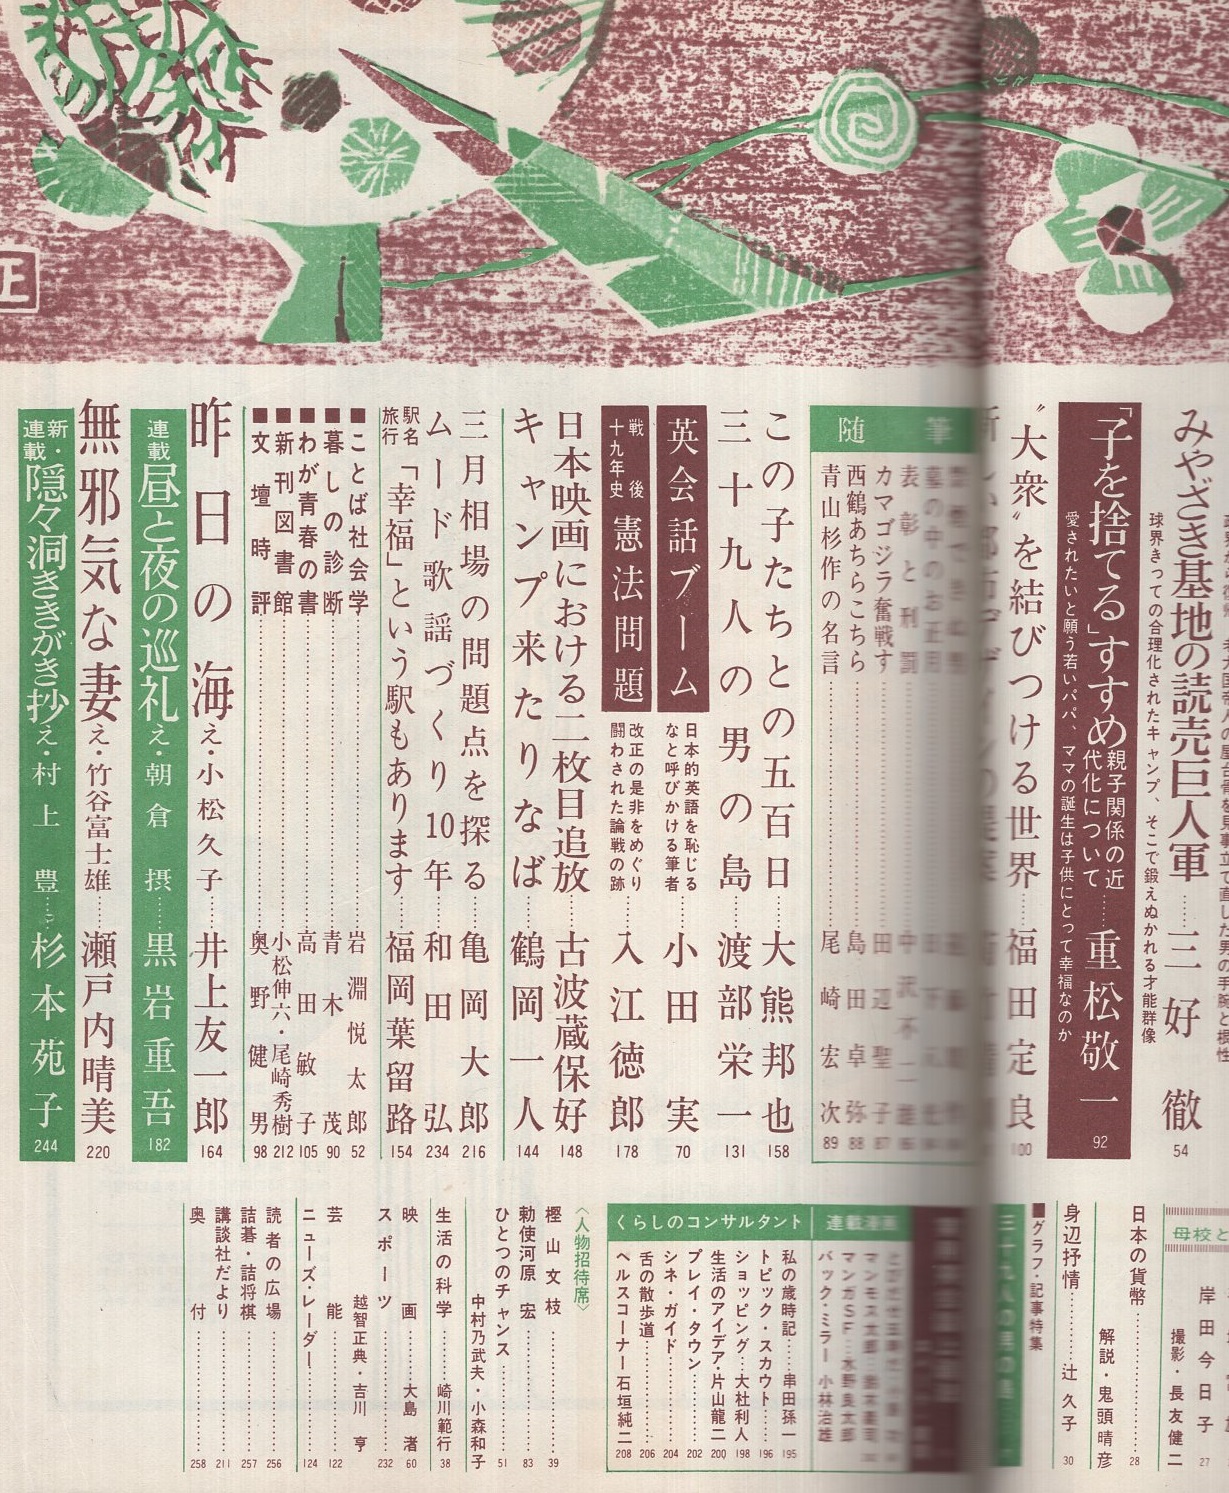 みやざき基地の読売巨人軍……三好 徹 54
球界きっての合理化されたキャンプ、そこで鍛えぬかれる才能群像
「子を捨てる」すすめ 親子関係の近代化について……重松敬一 92
愛されたいと願う若いパパ、ママの誕生は子供にとって幸福なのか
〝大衆〟を結びつける世界……福田定良 100
随筆
表彰と刑罰
カマゴジラ奮戦す……田辺聖子 87
西鶴あちらこちら……島田卓弥 88
青山杉作の名言……尾崎宏次 89
この子たちとの五百日……大熊邦也 158
三十九人の男の島……渡部栄一 131
英会話ブーム 日本的英語を恥じるなと呼びかける筆者……小田 実 70
戦後十九年史 憲法問題 改正の是非をめぐり闘わされた論戦の跡……入江徳郎 178
日本映画における二枚目追放……古波蔵保好 148
キャンプ来たりなば……鶴岡一人 144
三月相場の問題点を探る……亀岡大郎 216
ムード歌謡づくり10年……和田 弘 234
駅名旅行 「幸福」という駅もあります……福岡葉留路 154
■ことば社会学……岩淵悦太郎 52
■暮しの診断……青木 茂 90
■わが青春の書……高田敏子 105
■新刊図書館……小松伸六・尾崎秀樹 212
■文壇時評……奥野健男 98
昨日の海 え・小松久子……井上友一郎 164
連載 昼と夜の巡礼 え・朝倉 摂……黒岩重吾 182
無邪気な妻 え・竹谷富士雄……瀬戸内晴美 220
新・連載 隠々洞ききがき抄 え・村上 豊……杉本苑子 244
正
母校と
岸田今日子
撮影・長友健二 27
日本の貨幣……28
解説・鬼頭晴彦
身辺抒情……辻 久子 30
■グラフ・記事特集
三十九人の男の島
連載漫画
マンガSF…水野良太郎
バック・ミラー 小林治雄
くらしのコンサルタント
私の歳時記……串田孫一 195
トピック・スカウト……196
ショッピング…大杜利人 198
生活のアイデア・片山龍二 200
プレイ・タウン……202
シネ・ガイド……204
舌の散歩道……206
ヘルスコーナー 石垣純二 208
〈人物招待席〉
樫山文枝……39
勅使河原 宏……83
ひとつのチャンス……51
中村乃武夫・小森和子
生活の科学……崎川範行 38
映画……大島 渚 60
スポーツ……232
越智正典・吉川 亨
芸能……122
ニューズ・レーダー……124
読者の広場……256
詰碁・詰将棋……257
講談社だより……211
奥付……258